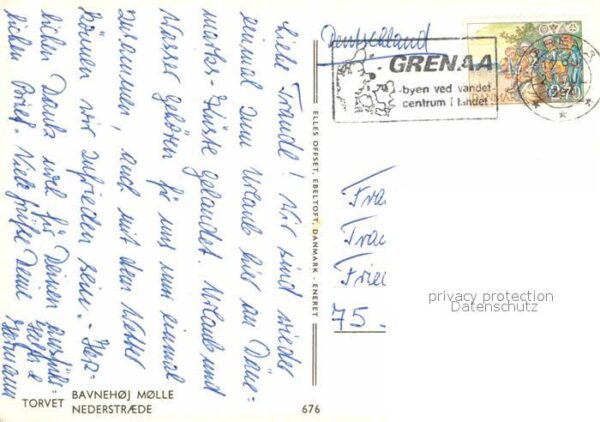 Liebe Traudl! Wir sind wieder
einmal zum Urlaub hier an Däne-
marks Küste gelandet. Urlaub und
Wasser gehören für uns nun einmal
zusammen, auch mit dem Wetter
können wir zufrieden sein. - Herz-
lichen Dank noch für Deinen ausführ-
lichen Brief. Viele Grüße Deine
Hermann
TORVET BAVNEHØJ MØLLE
NEDERSTRÆDE
676
ELLES OFFSET, EBELTOFT, DANMARK - ENERET
Deutschland
GRENAA
-byen ved vandet-
centrum i landet
DANMARK
Fra
Trau
Frie
75 -
privacy protection
Datenschutz